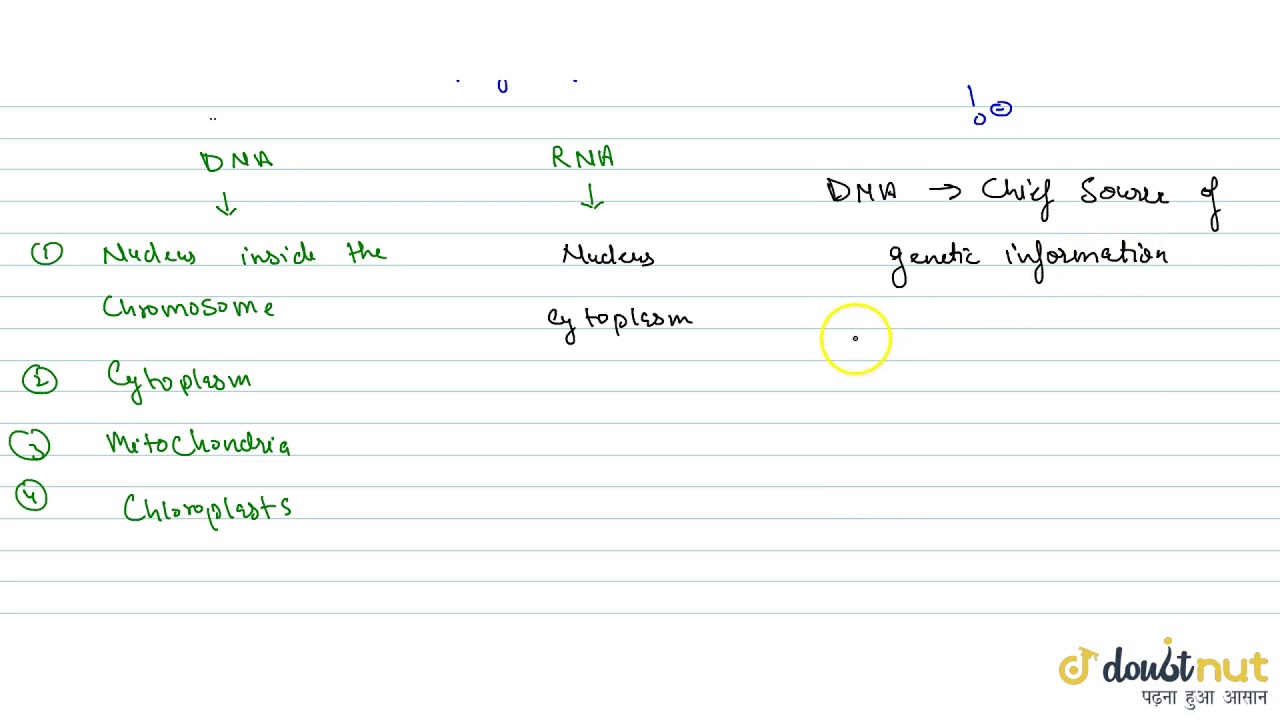 DNA
RNA
↓
↓
DNA → Chief Source of
genetic information
① Nucleus inside the
Chromosome
Nucleus
Cytoplasm
② Cytoplasm
③ Mitochondria
④ Chloroplasts
doubtnut
पढ़ना हुआ आसान